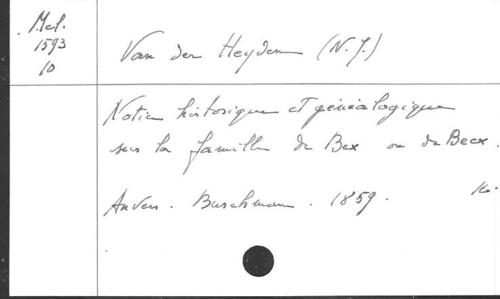 Mel.
1593
10
Van der Heyden (N. J.)
Notice historique et généalogique
sur la famille de Bex ou de Beex.
Anvers. Buschmann. 1859.